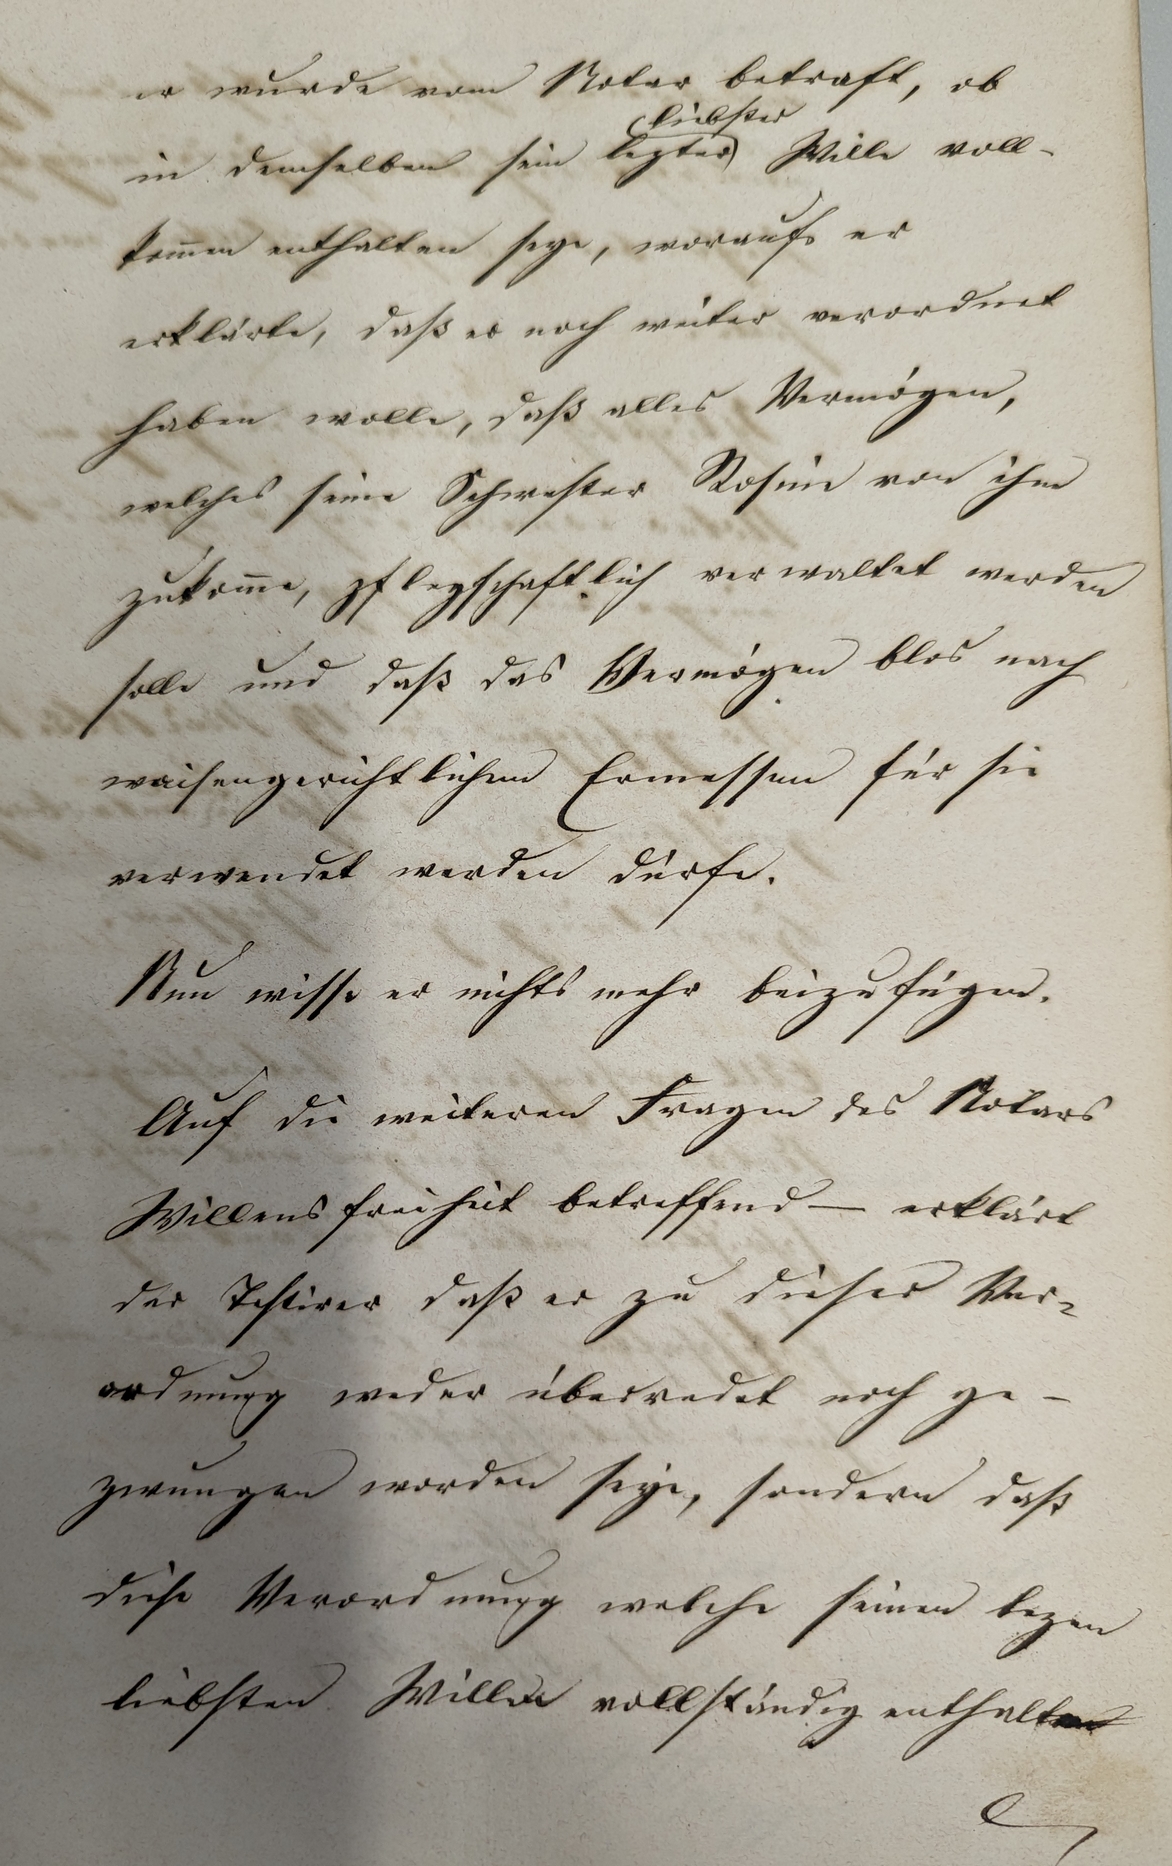 er wurde vom Notar betraft, ob
liebster
in demselben sein lezter Wille voll-
kom̄en enthalten seye, woraufs er
erklärte, daß er noch weiter verordnet
haben wolle, daß alles Vermögen,
welches seine Schwester Rosine von ihm
zukom̄e, pflegschaftlich verwaltet werden
solle und daß das Vermögen blos nach
waisengerichtlichem Ermessen für sie
verwendet werden dürfe.
Nun wisse er nichts mehr beizufügen.
Auf die weiteren Fragen des Notars
Willensfreiheit betreffend — erklärt
der Testirer daß er zu dieser Ver-
ordnung weder überredet noch ge-
zwungen worden seye, sondern daß
diese Verordnung welche seinen lezen
liebsten Willen vollständig enthalten